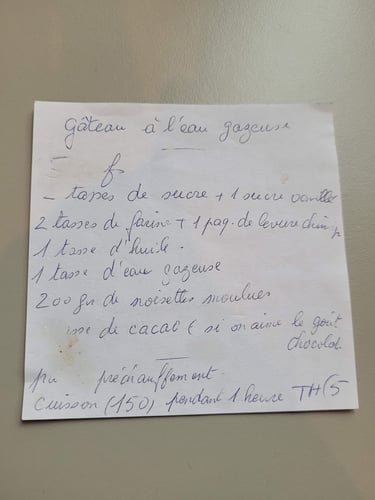 Gâteau à l'eau gazeuse
5 fs
- tasses de sucre + 1 sucre vanillé
2 tasses de farine + 1 paq. de levure chim
1 tasse d'huile.
1 tasse d'eau gazeuse
200 gr de noisettes moulues
sse de cacao ( si on aime le goût
chocolat.
préchauffement.
Cuisson (150) pendant 1 heure TH(5